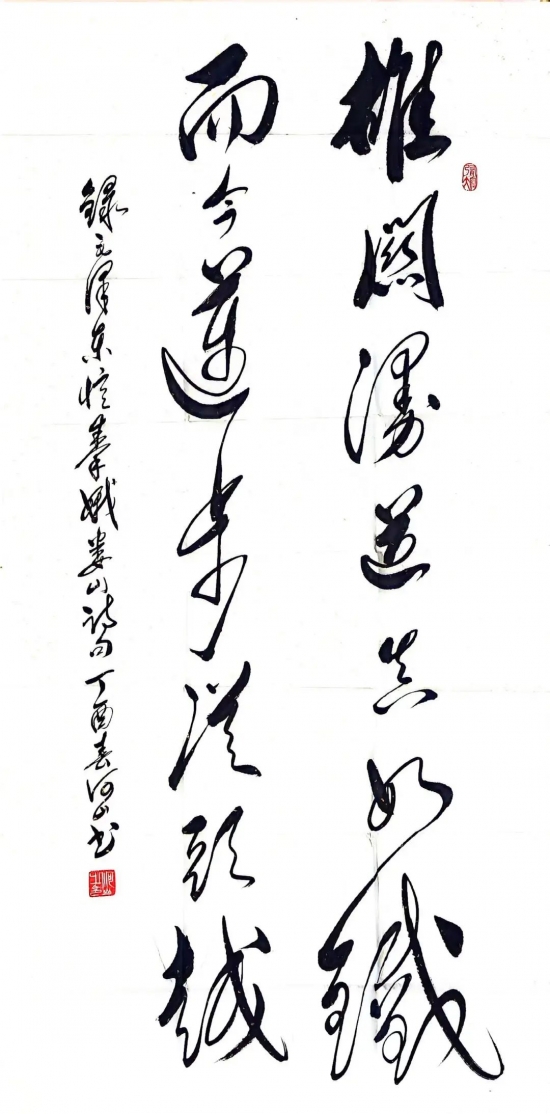 雄關漫道真如鐵
而今邁步從頭越
錄毛澤東憶秦娥婁山詩句丁酉春河山書